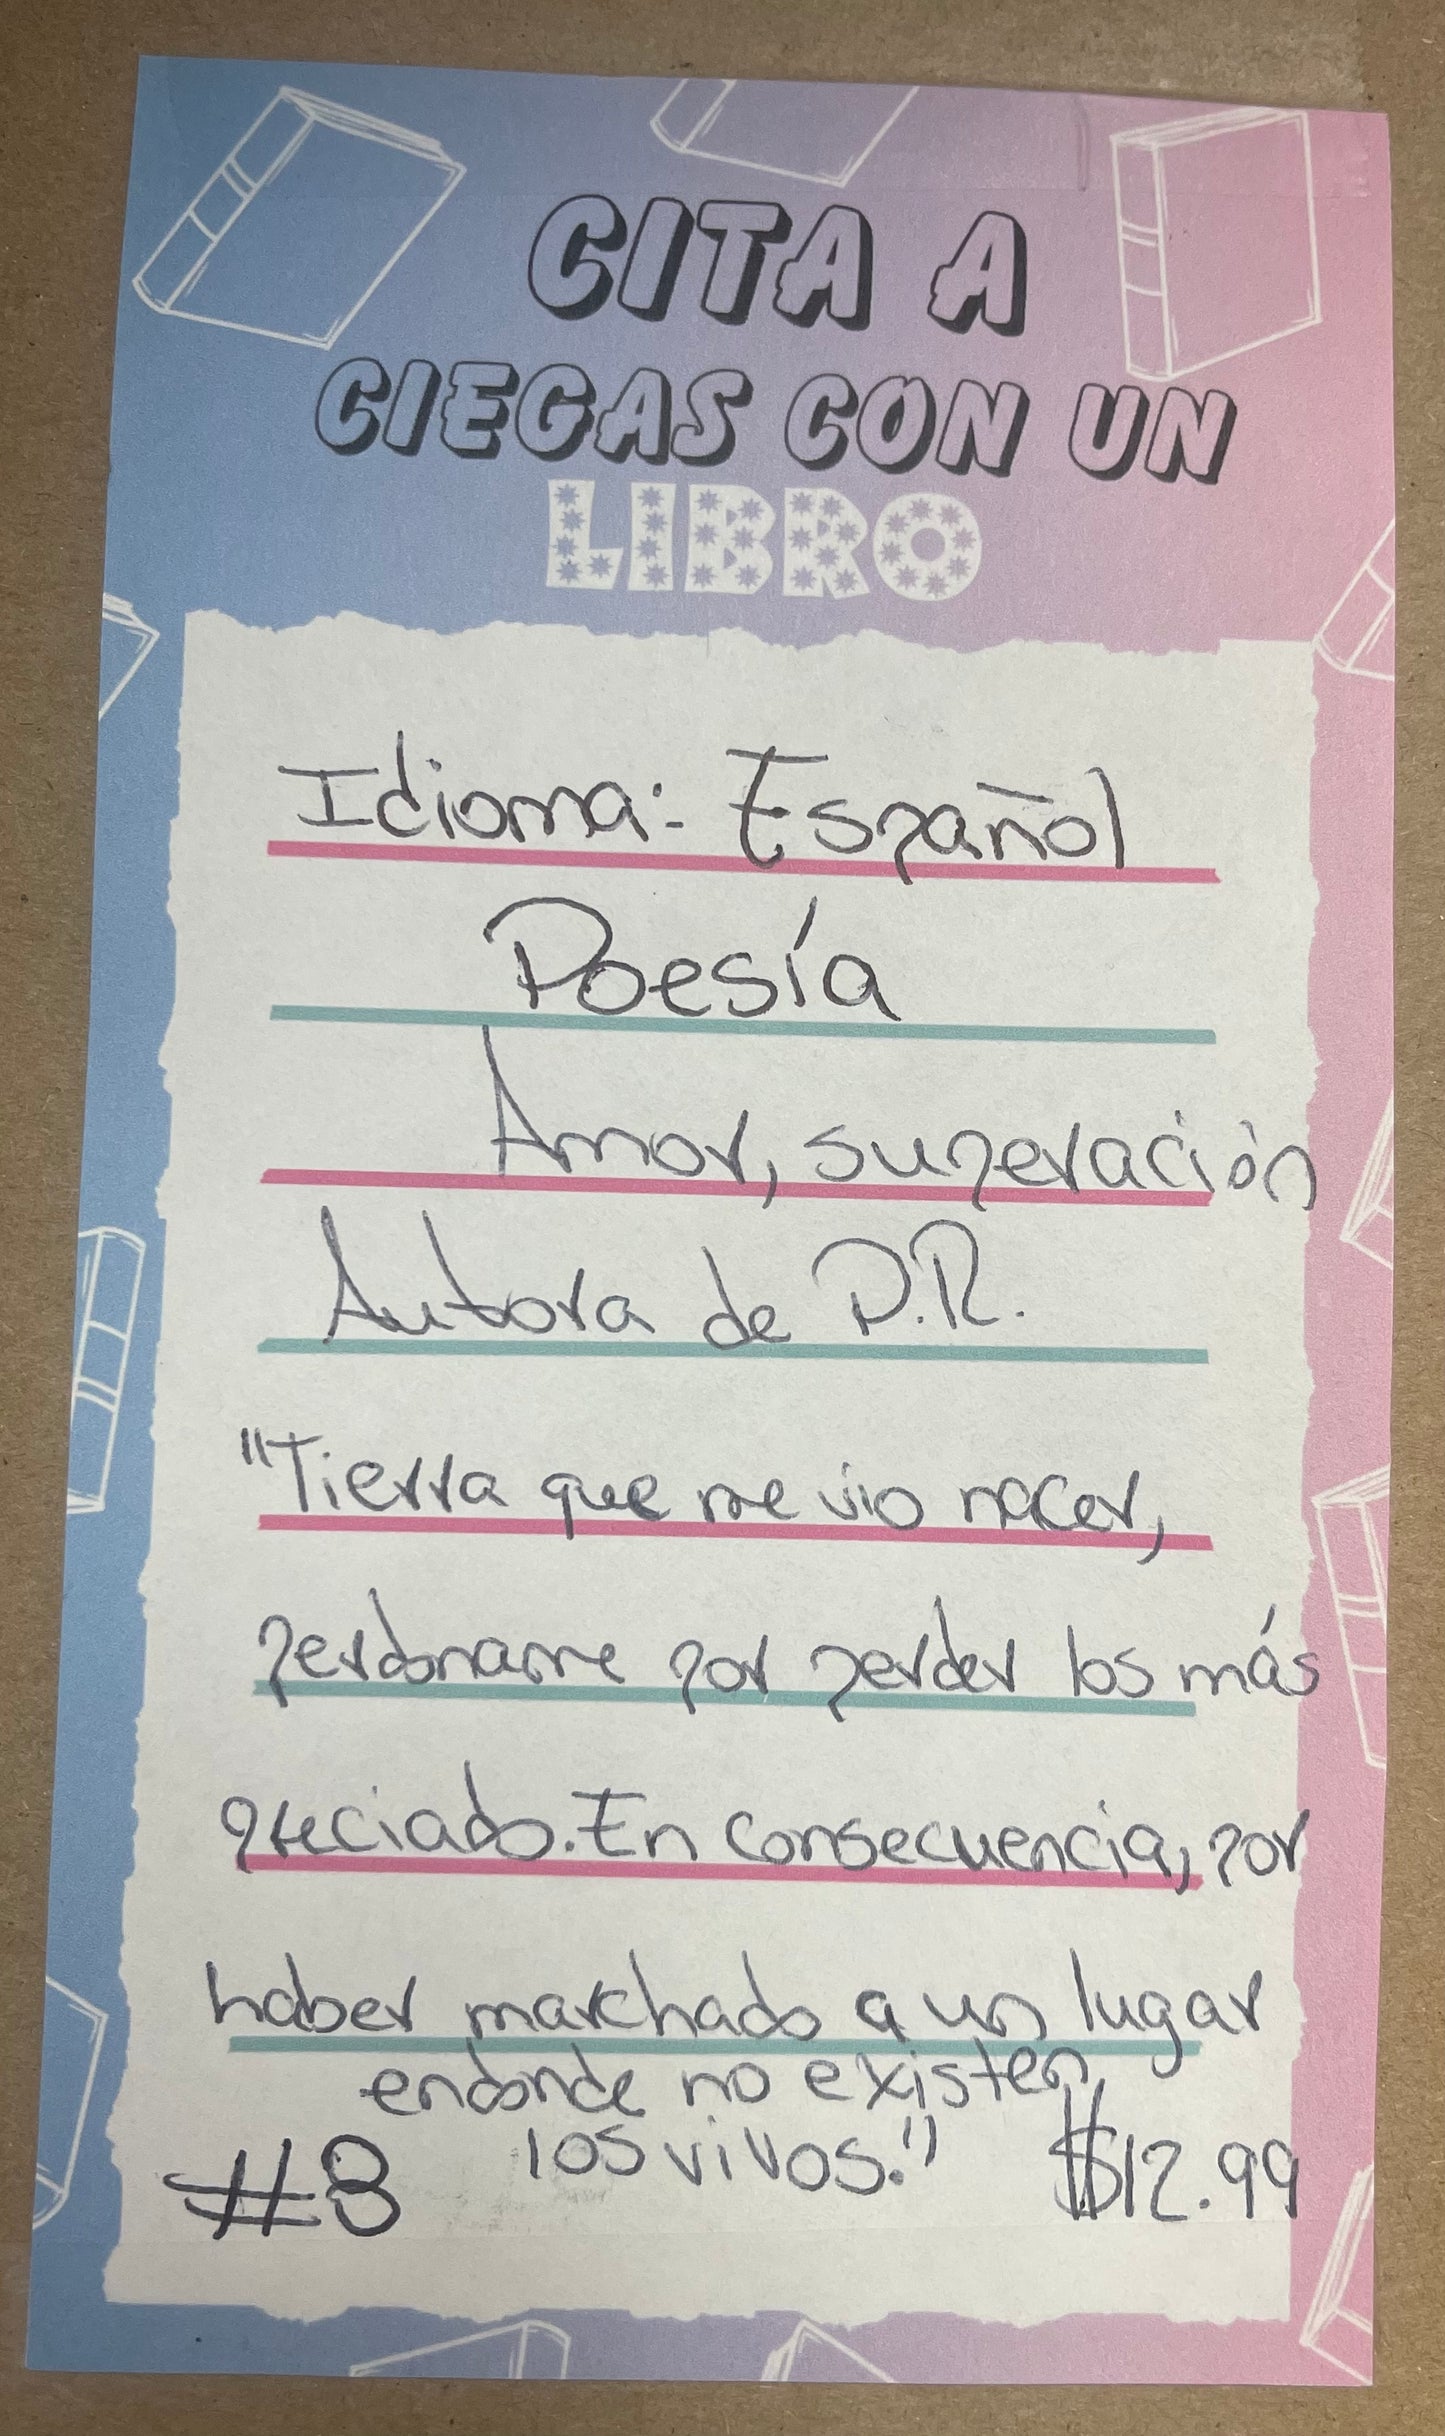 CITA A
CIEGAS CON UN
LIBRO
Idioma: Español
Poesía
Amor, superación
Autora de P.R.
"Tierra que me vio nacer,
perdoname por perder los más
preciado. En consecuencia, por
haber marchado a un lugar
endonde no existen
los vivos."
#8 $12.99